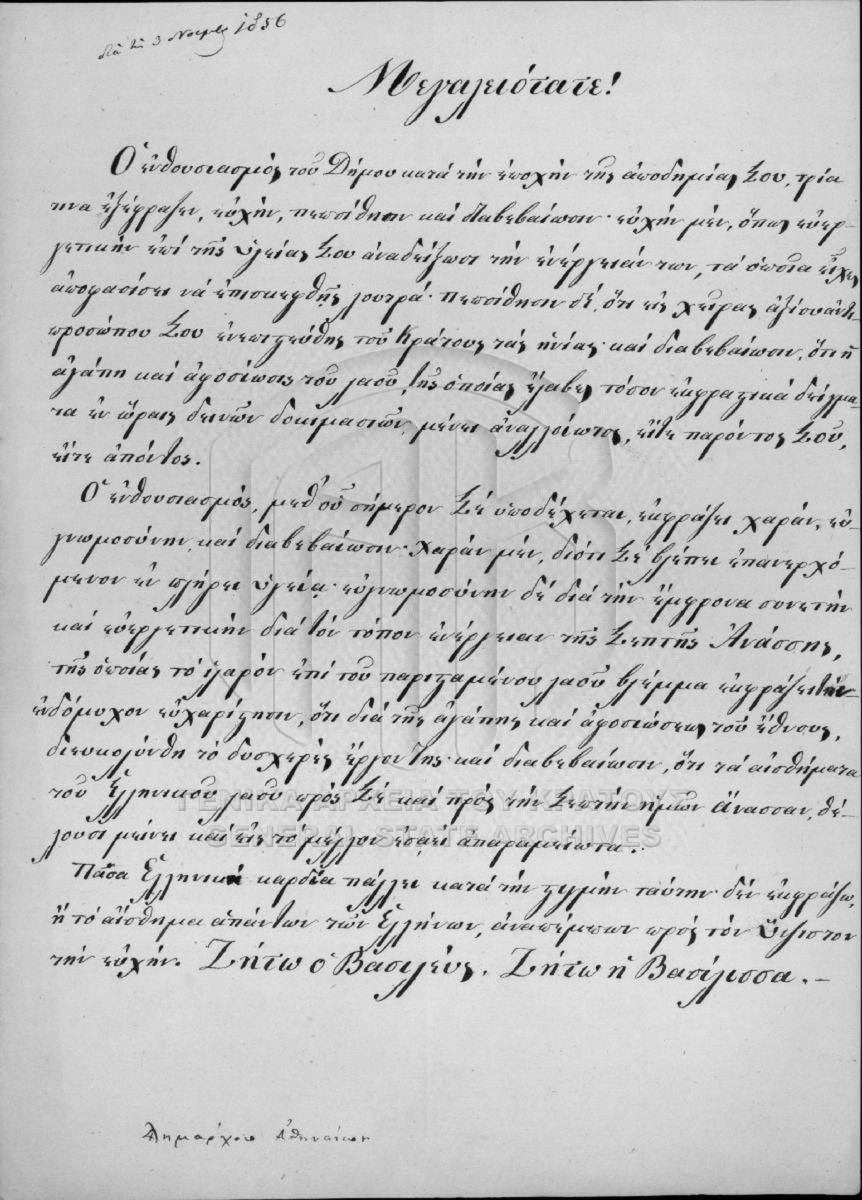 διὰ τὴν 3 Νοεμβ 1856
Μεγαλειότατε!
Ὁ ἐνθουσιασμὸς τοῦ Δήμου κατὰ τὴν ἐποχὴν τῆς ἀποδημίας Σου, τρία
τινα ἐξέφρασεν, εὐχὴν, πεποίθησιν καὶ διαβεβαίωσιν· εὐχὴν μὲν, ὅπως εὐερ-
γετικὴν ἐπὶ τῆς ὑγείας Σου ἀναδείξωσι τὴν ἐνέργειάν των, τὰ ὁποῖα εἶχες
ἀποφασίσει νὰ ἐπισκεφθῇς λουτρά· πεποίθησιν δὲ, ὅτι εἰς χεῖρας ἀξίου ἀντι-
προσώπου Σου ἐνεπιστεύθης τοῦ Κράτους τὰς ἡνίας· καὶ διαβεβαίωσιν, ὅτι ἡ
ἀγάπη καὶ ἀφοσίωσις τοῦ λαοῦ, τῆς ὁποίας ἔλαβες τόσον ἐκφραστικὰ δείγμα-
τα ἐν ὥραις δεινῶν δοκιμασιῶν, μένει ἀναλλοίωτος, εἴτε παρόντος Σου,
εἴτε ἀπόντος.
Ὁ ἐνθουσιασμὸς, μεθ' οὗ σήμερον Σὲ ὑποδέχεται, ἐκφράζει χαρὰν, εὐ-
γνωμοσύνην, καὶ διαβεβαίωσιν· χαρὰν μὲν, διότι Σὲ βλέπει ἐπανερχό-
μενον ἐν πλήρει ὑγείᾳ· εὐγνωμοσύνην δὲ διὰ τὴν ἔμφρονα συνετὴν
καὶ εὐεργετικὴν διὰ τὸν τόπον ἐνέργειαν τῆς Σεπτῆς Ἀνάσσης,
τῆς ὁποίας τὸ ἱλαρὸν ἐπὶ τοῦ παρισταμένου λαοῦ βλέμμα ἐκφράζει τὴν
ἐνδόμυχον εὐχαρίστησιν, ὅτι διὰ τῆς ἀγάπης καὶ ἀφοσιώσεως τοῦ ἔθνους,
διευκολύνθη τὸ δυσχερὲς ἔργον της· καὶ διαβεβαίωσιν, ὅτι τὰ αἰσθήματα
τοῦ Ἑλληνικοῦ λαοῦ πρὸς Σὲ καὶ πρὸς τὴν Σεπτὴν ἡμῶν Ἄνασσαν, θέ-
λουσι μείνει καὶ εἰς τὸ μέλλον ἐσαεὶ ἀπαραμείωτα.
Πᾶσα Ἑλληνικὴ καρδία πάλλει κατὰ τὴν στιγμὴν ταύτην· δὲν ἐκφράζω,
ἢ τὸ αἴσθημα ἁπάντων τῶν Ἑλλήνων, ἀναπέμπων πρὸς τὸν Ὕψιστον
τὴν εὐχήν. Ζήτω ὁ Βασιλεύς. Ζήτω ἡ Βασίλισσα.—
Δημάρχου Ἀθηναίων
ΓΕΝΙΚΑ ΑΡΧΕΙΑ ΤΟΥ ΚΡΑΤΟΥΣ
GENERAL STATE ARCHIVES